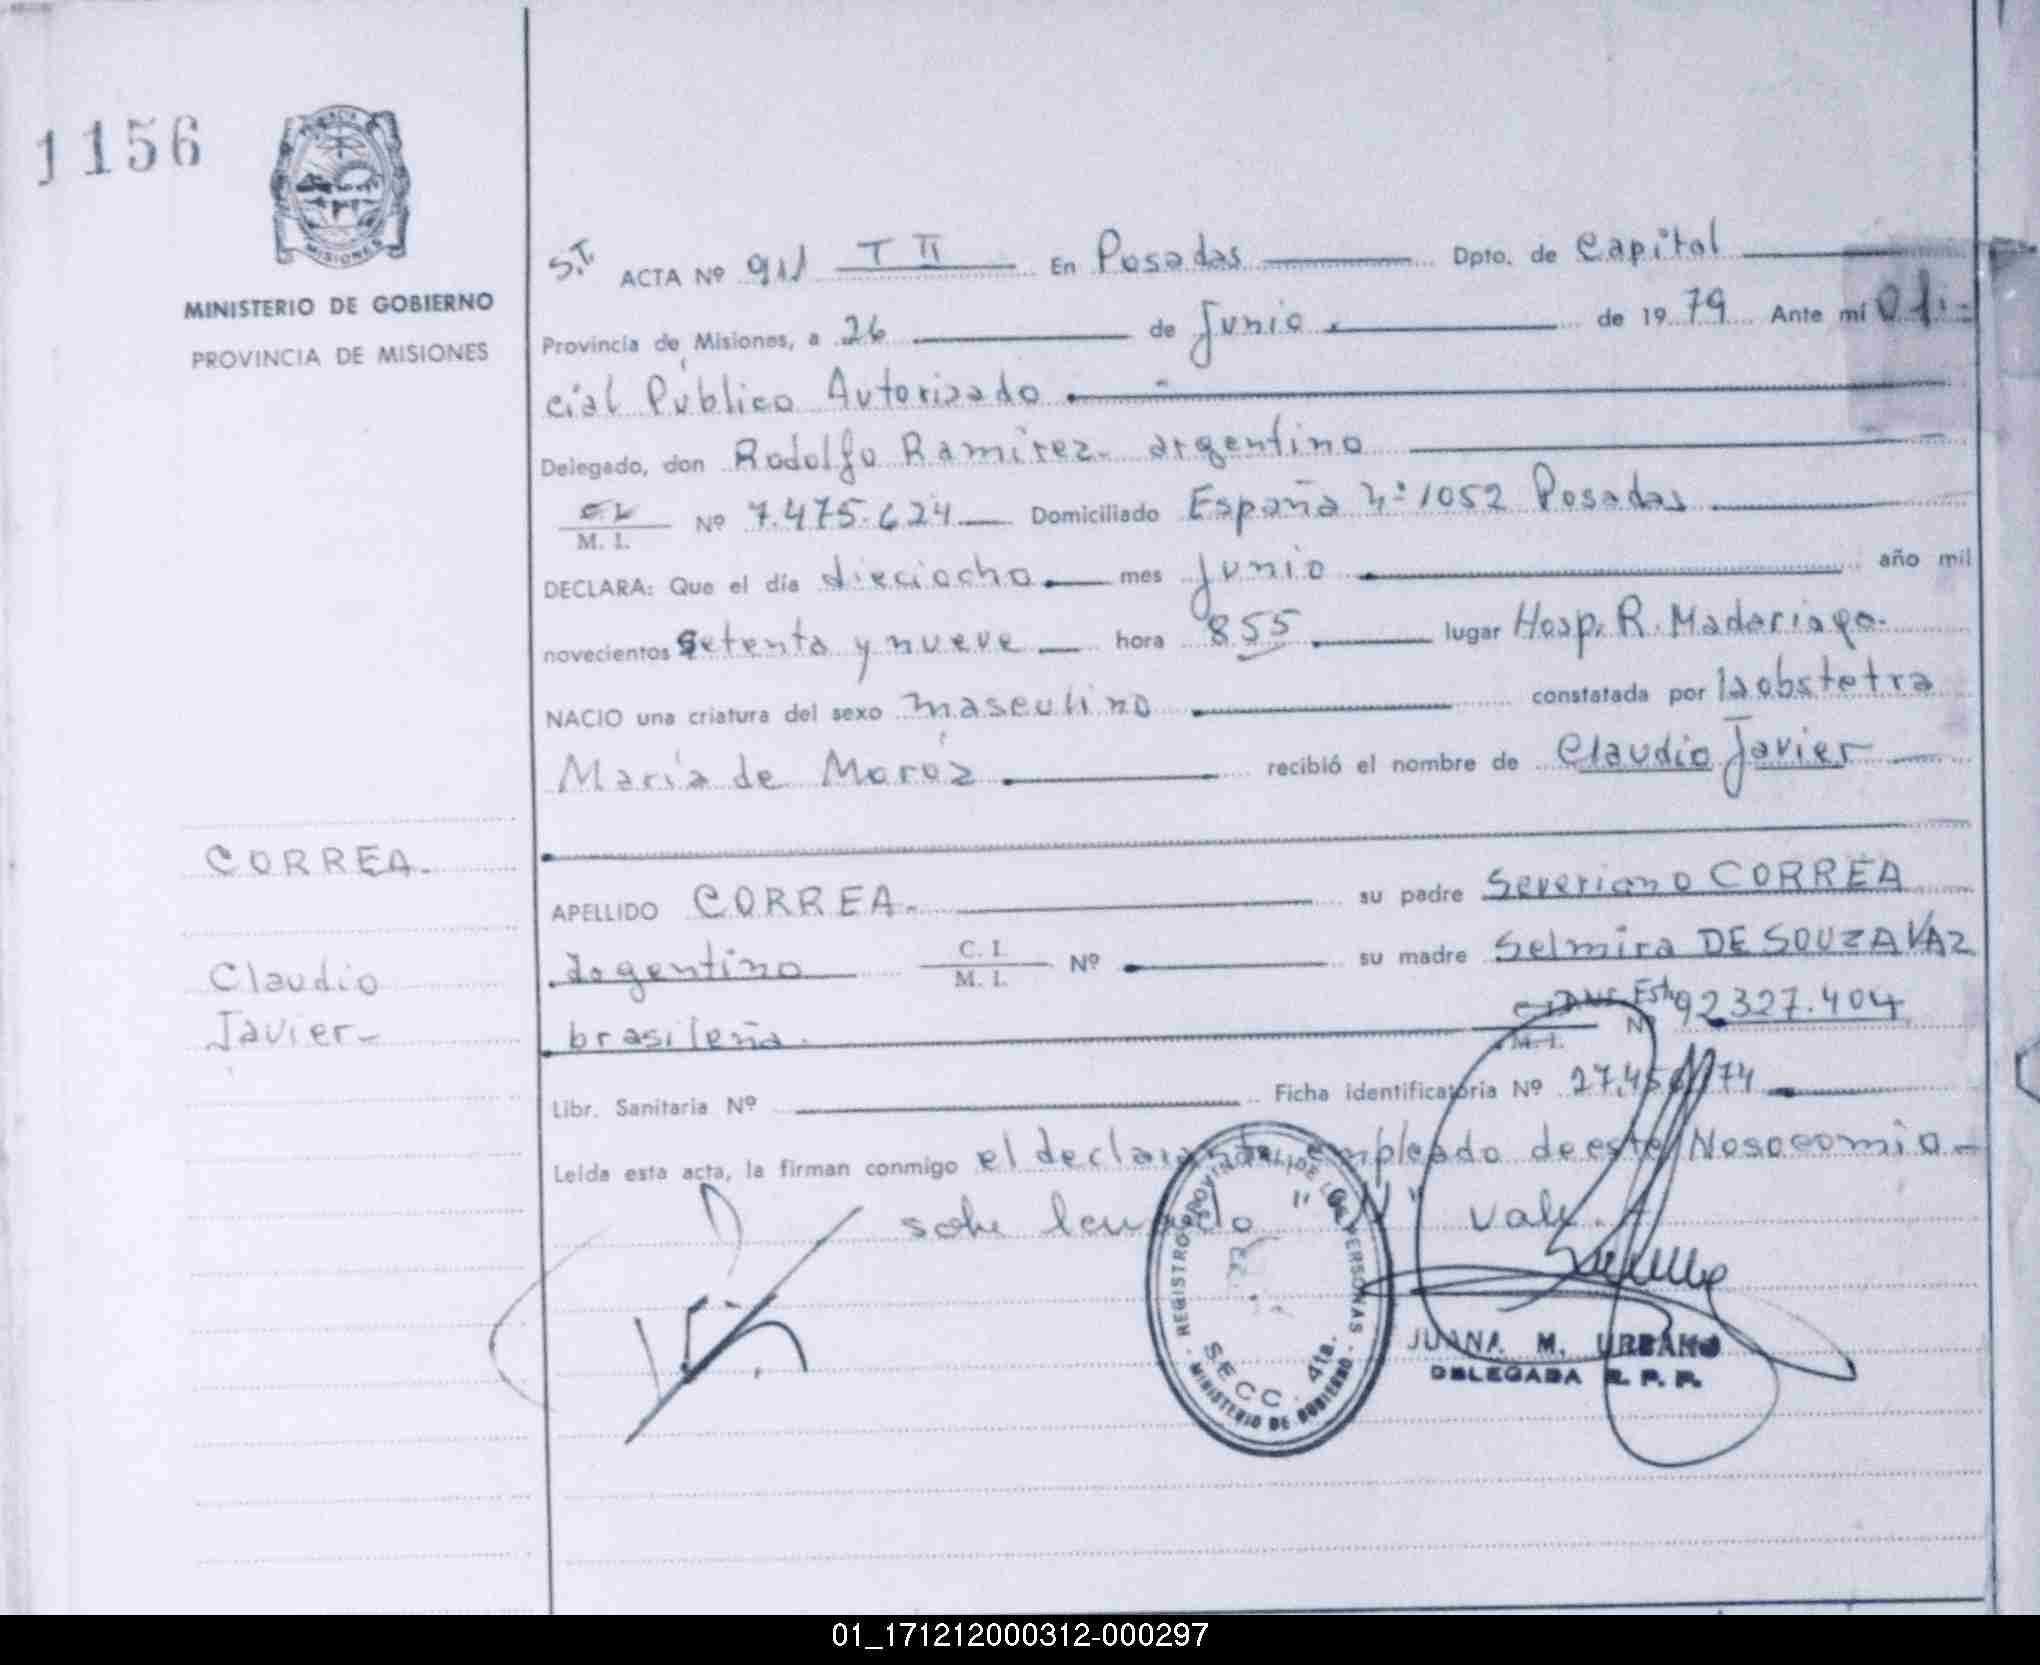 1156
MISIONES
MINISTERIO DE GOBIERNO
PROVINCIA DE MISIONES
S.T. ACTA Nº 911 T II En Posadas Dpto. de Capital
Provincia de Misiones, a 26 de Junio de 1979 Ante mí Ofi-
cial Público Autorizado
Delegado, don Rodolfo Ramírez- argentino
M. I. Nº 7.475.624 Domiciliado España Nº 1052 Posadas
DECLARA: Que el día dieciocho mes Junio año mil
novecientos setenta y nueve hora 855 lugar Hosp. R. Madariaga.
NACIO una criatura del sexo masculino constatada por la obstetra
María de Moroz recibió el nombre de Claudio Javier
CORREA.
Claudio
Javier-
APELLIDO CORREA. su padre Severiano CORREA
argentino C. I. M. I. Nº su madre Selmira DE SOUZA VAZ
brasileña. M. I. Nº 92327.404
Libr. Sanitaria Nº Ficha identificatoria Nº
Leída esta acta, la firman conmigo el declarante, empleado de este Nosocomio-
Vale.
REGISTRO PROVINCIAL DE LAS PERSONAS
SECC. 4ta.
MINISTERIO DE GOBIERNO
JUANA M. URBANO
DELEGADA R. P. P.
01_171212000312-000297